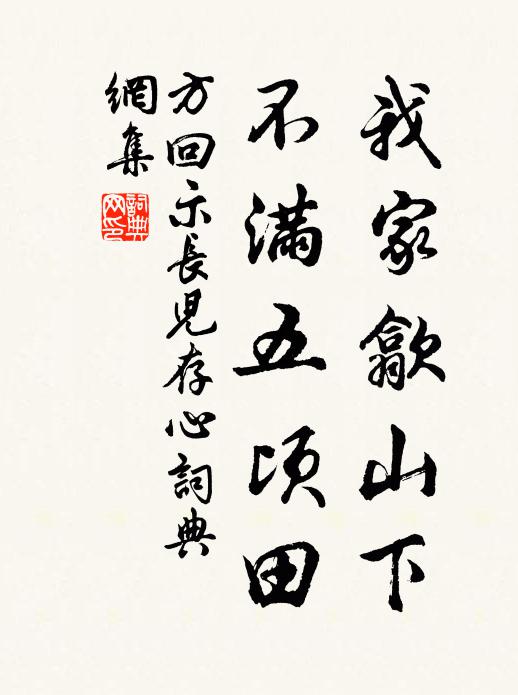 我家歙山下
不滿五頃田
方回示長兒存心詞典
網集
詞典
网印